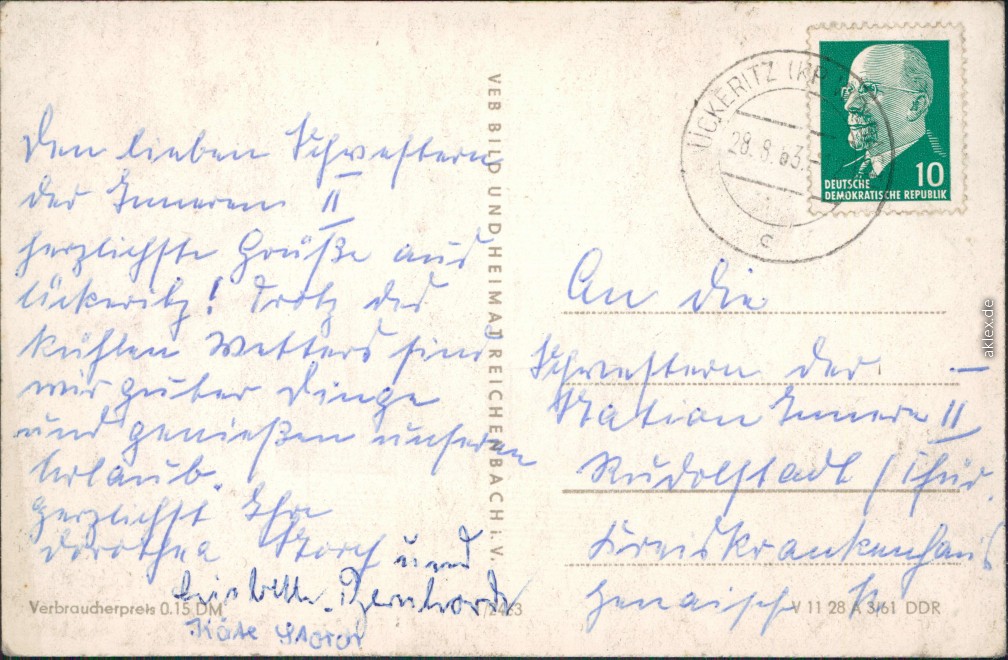 Den lieben Schwestern
der Inneren II
herzlichste Grüße aus
Ückeritz! Trotz des
kühlen Wetters sind
wir guter Dinge
und genießen unseren
Urlaub.
Herzlichst Ihre
Dorothea Storch und
Bernhardt
Käte
Verbraucherpreis 0.15 DM
VEB BILD UND HEIMAT REICHENBACH i. V.
ÜCKERITZ (KR.
28.8.63.
c
10
DEUTSCHE
DEMOKRATISCHE REPUBLIK
An die
Schwestern der
Station Innere II
Rudolstadt / Thür.
Kreiskrankenhaus
V 11 28 A 3/61 DDR
aklex.de